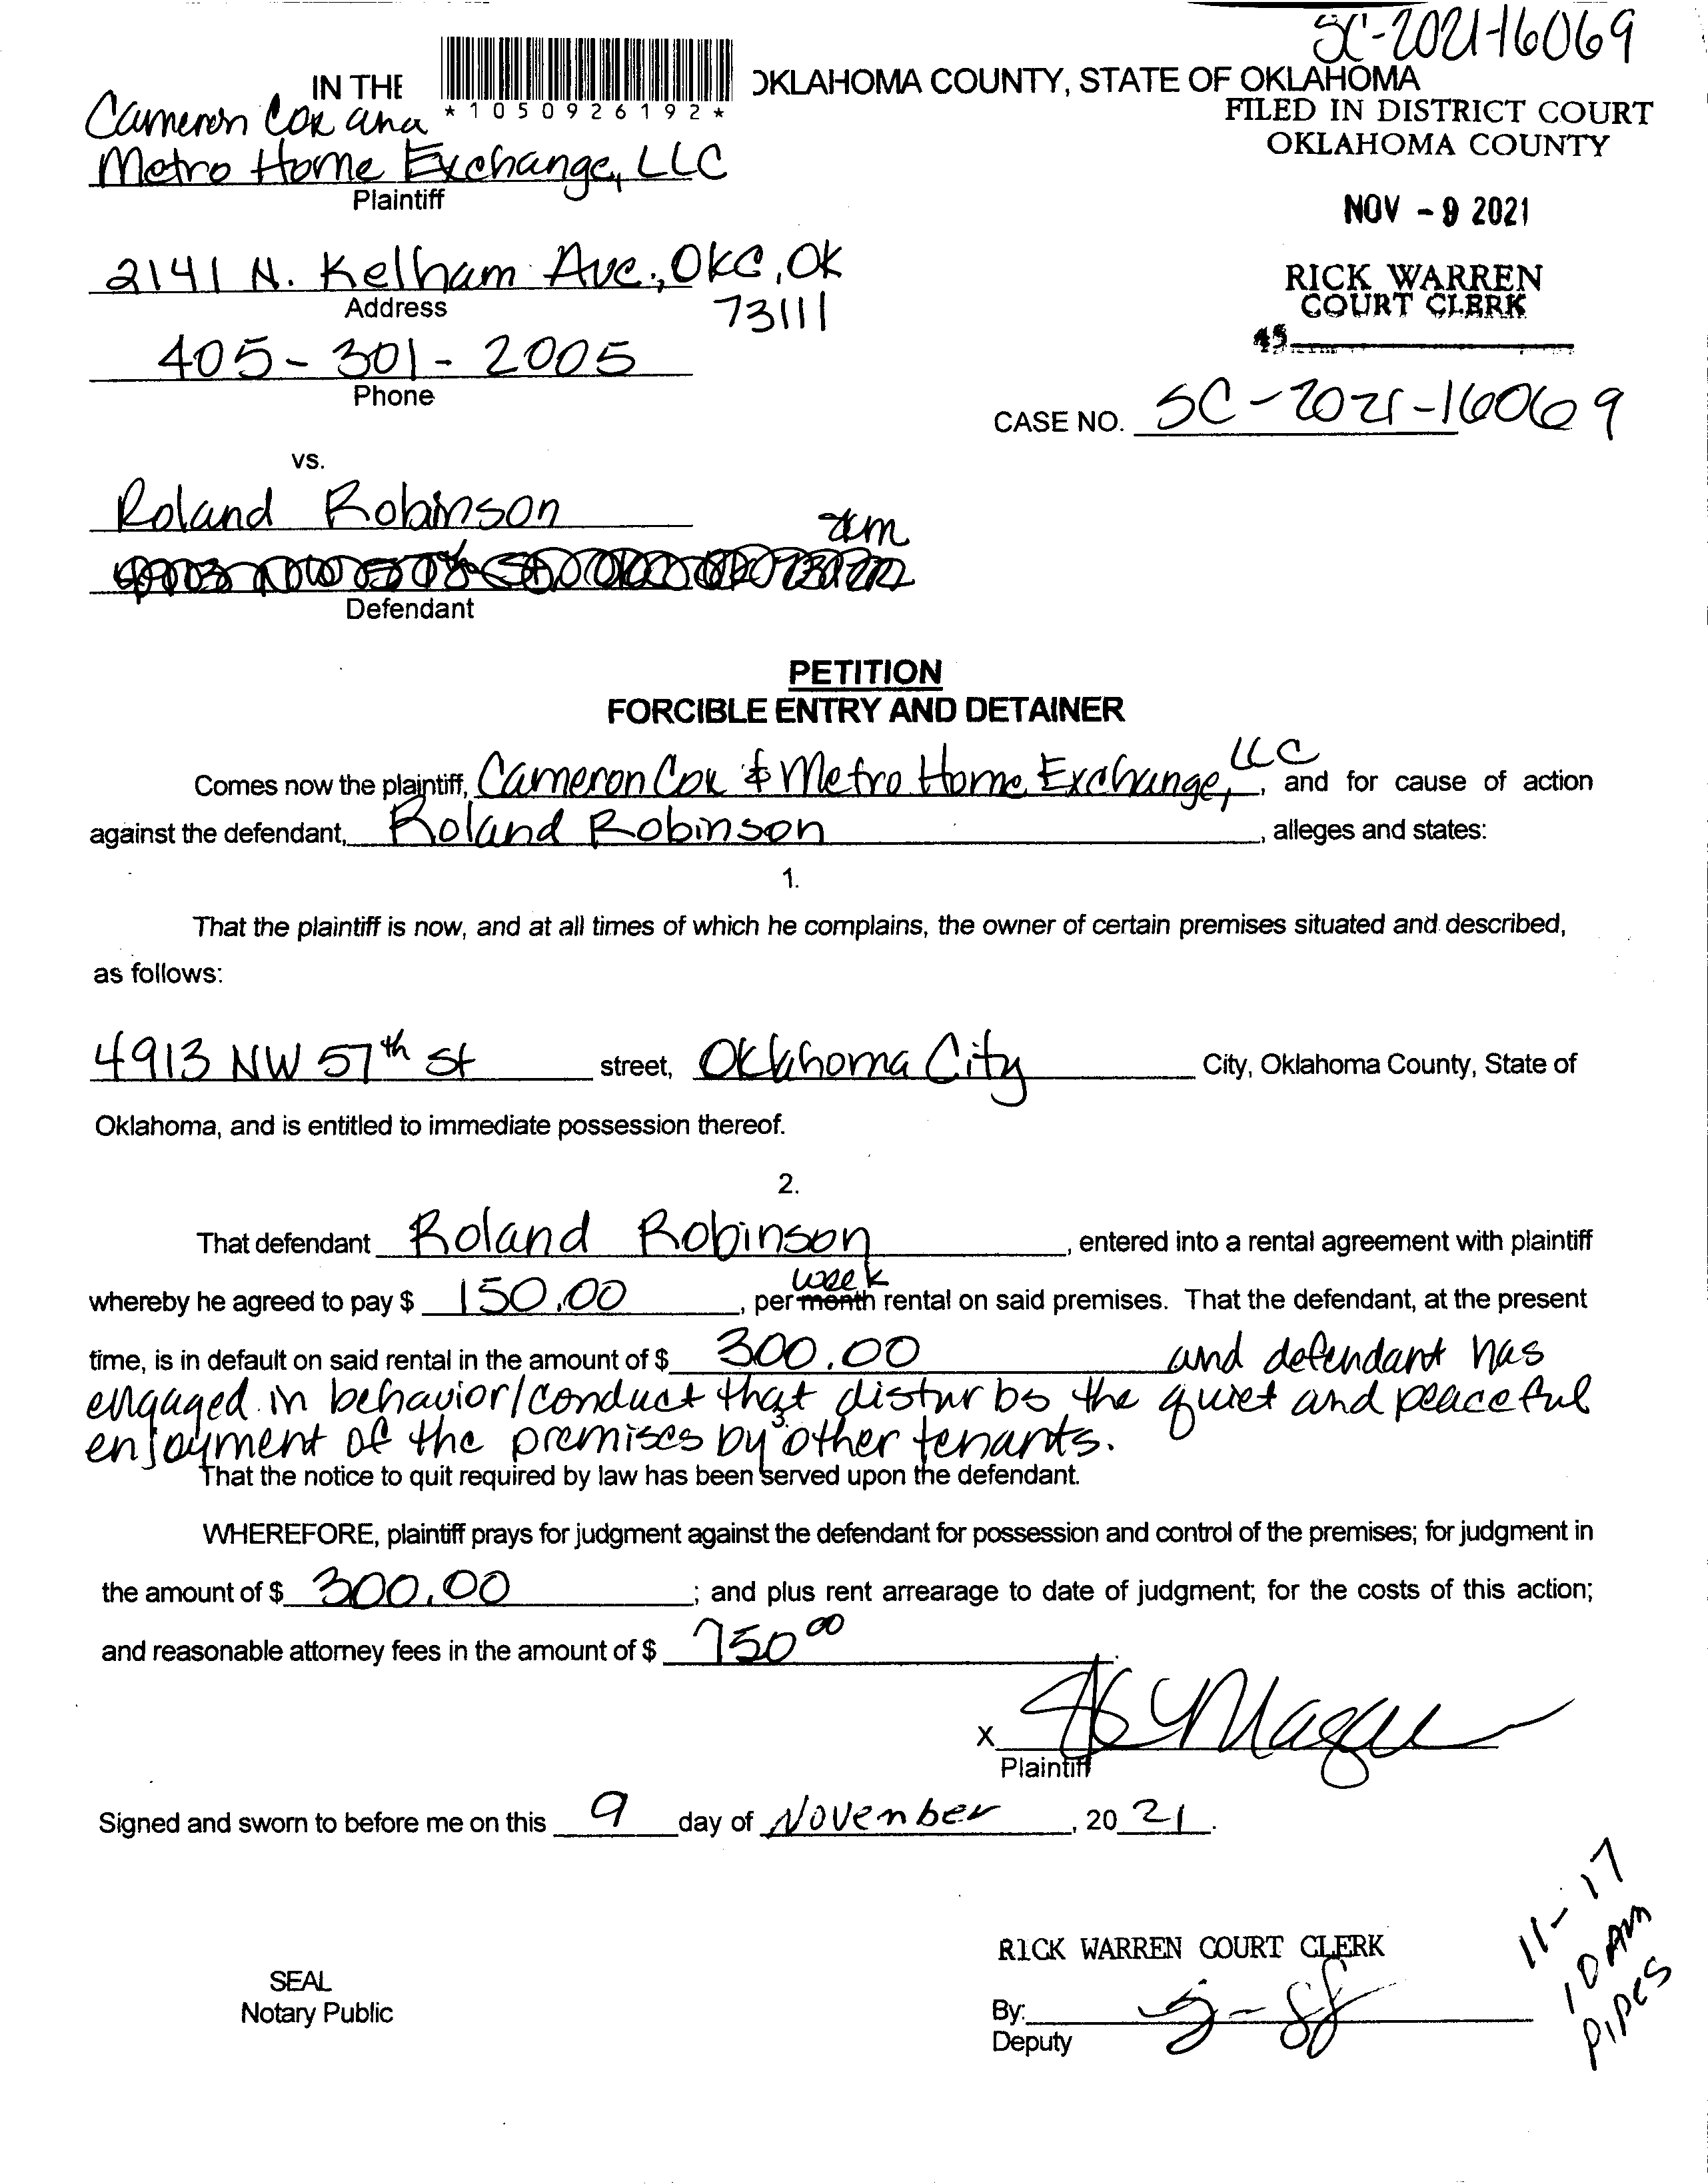 SC-2021-16069
IN THE
*1050926192*
OKLAHOMA COUNTY, STATE OF OKLAHOMA
FILED IN DISTRICT COURT
OKLAHOMA COUNTY
Cameron Cox and
Metro Home Exchange, LLC
Plaintiff
NOV - 9 2021
2141 N. Kelham Ave., OKC, OK
73111
Address
RICK WARREN
COURT CLERK
45
405-301-2005
Phone
CASE NO. SC-2021-16069
vs.
Roland Robinson
Defendant
PETITION
FORCIBLE ENTRY AND DETAINER
Comes now the plaintiff, Cameron Cox & Metro Home Exchange, LLC, and for cause of action
against the defendant, Roland Robinson, alleges and states:
1.
That the plaintiff is now, and at all times of which he complains, the owner of certain premises situated and described,
as follows:
4913 NW 57th St street, Oklahoma City City, Oklahoma County, State of
Oklahoma, and is entitled to immediate possession thereof.
2.
That defendant Roland Robinson, entered into a rental agreement with plaintiff
whereby he agreed to pay $ 150.00, per month week rental on said premises. That the defendant, at the present
time, is in default on said rental in the amount of $ 300.00 and defendant has
engaged in behavior/conduct that disturbs the quiet and peaceful
enjoyment of the premises by other tenants.
3.
That the notice to quit required by law has been served upon the defendant.
WHEREFORE, plaintiff prays for judgment against the defendant for possession and control of the premises; for judgment in
the amount of $ 300.00; and plus rent arrearage to date of judgment; for the costs of this action;
and reasonable attorney fees in the amount of $ 750 00.
X
Plaintiff
Signed and sworn to before me on this 9 day of November, 20 21.
11-17
10 AM
PIPES
RICK WARREN COURT CLERK
SEAL
Notary Public
By:
Deputy